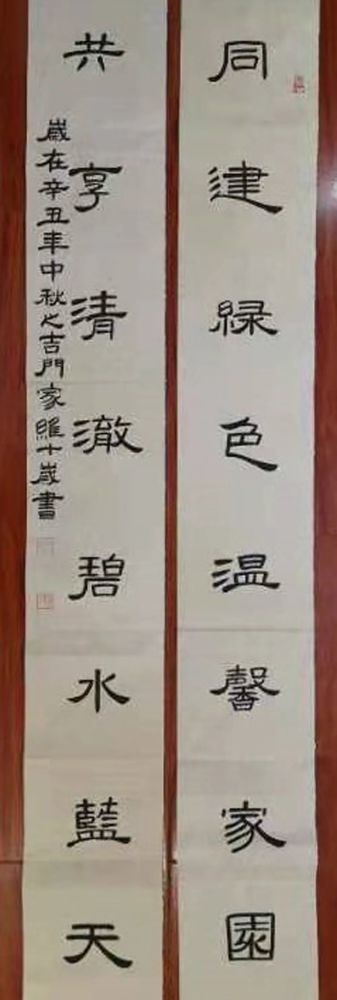 同建綠色温馨家園
共享清澈碧水藍天
歲在辛丑年中秋之吉門家維十歲書